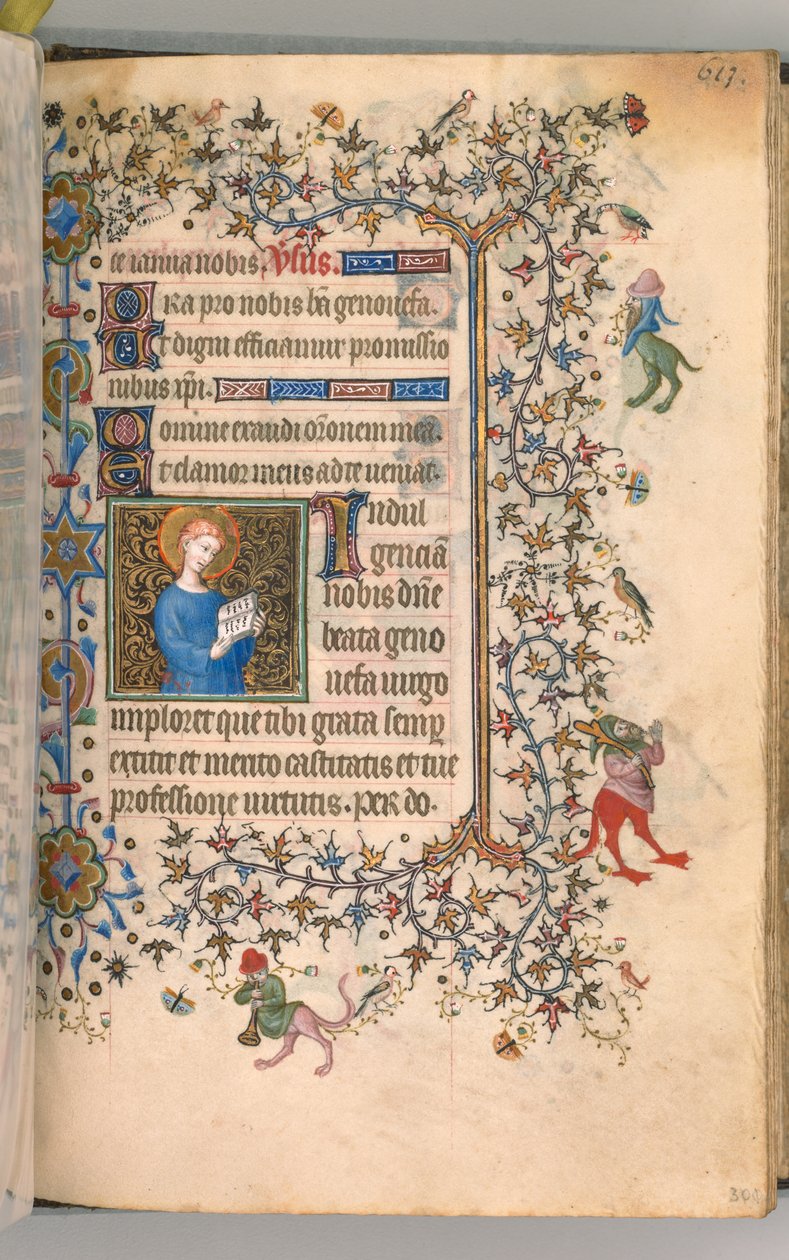 617.
te ianua nobis. Vsus.
ORa pro nobis bā genouefa.
Et digni efficiamur promissio
nibus xpi.
Domine exaudi orōnem meā.
Et clamor meus ad te ueniat.
Indul
genciā
nobis dñe
beata geno
uefa uirgo
imploret que tibi grata semp
extitit et merito castitatis et tue
professione uirtutis. per do.